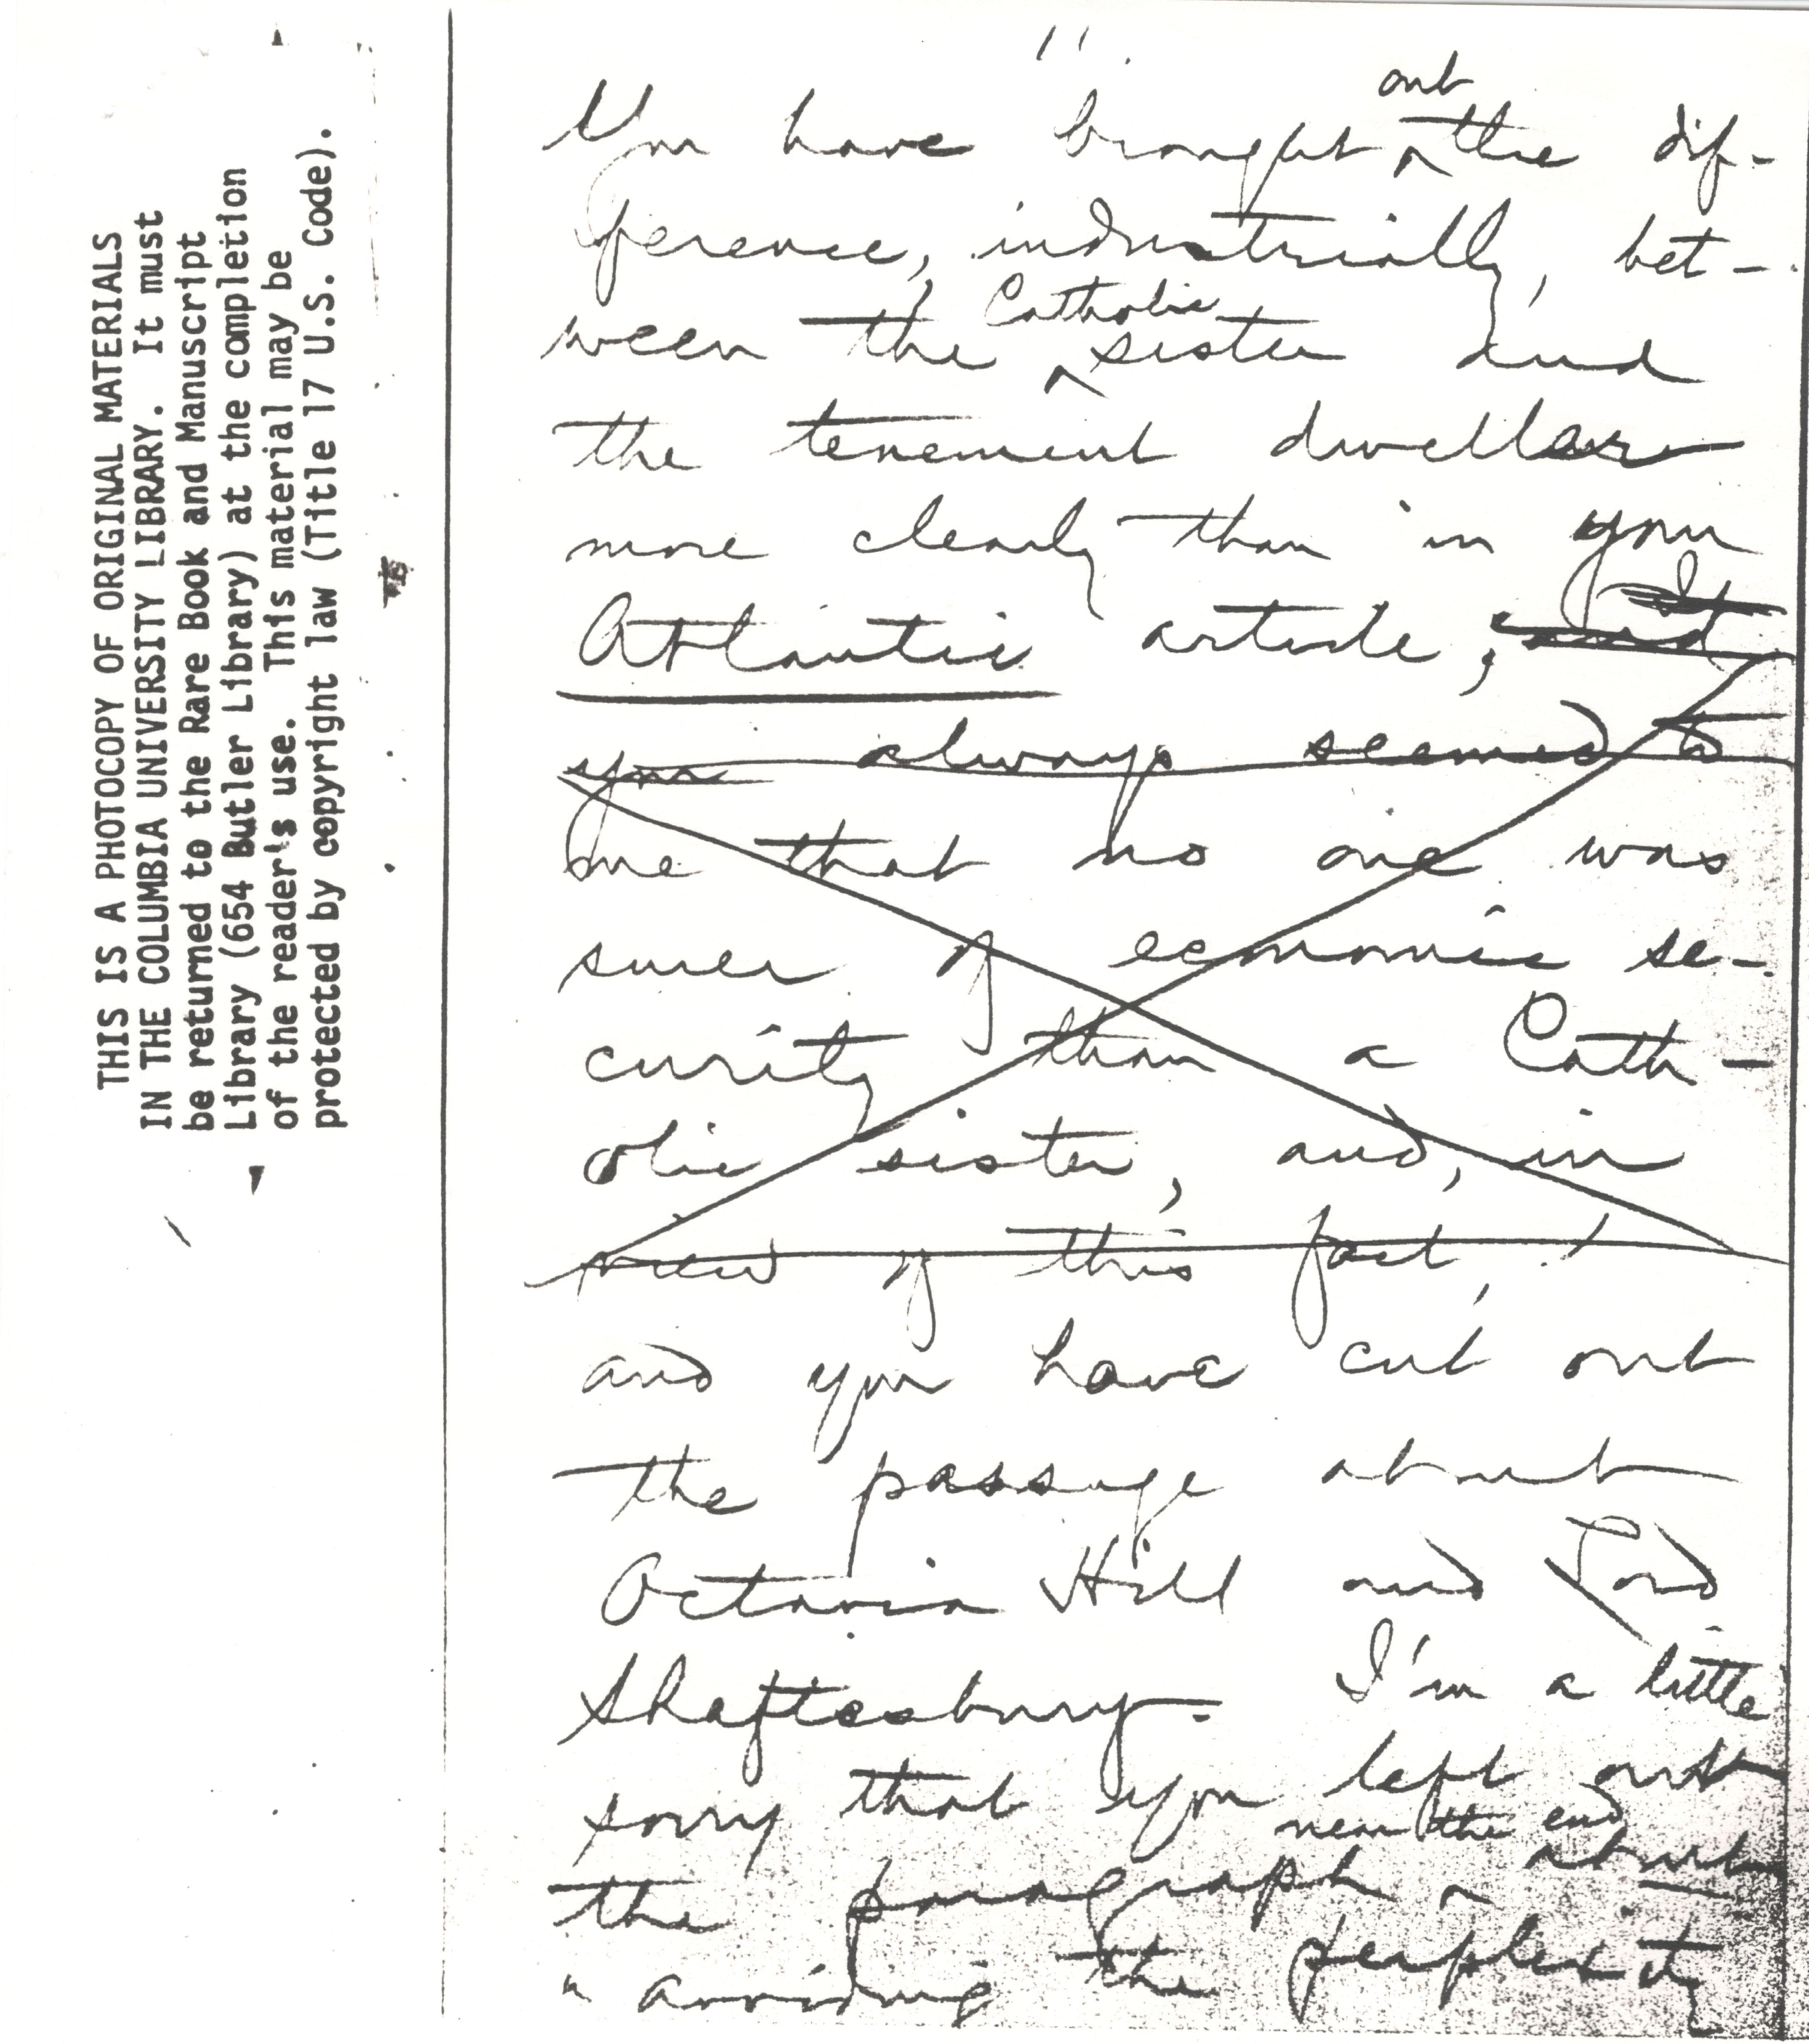 THIS IS A PHOTOCOPY OF ORIGINAL MATERIALS
IN THE COLUMBIA UNIVERSITY LIBRARY. It must
be returned to the Rare Book and Manuscript
Library (654 Butler Library) at the completion
of the reader's use. This material may be
protected by copyright law (Title 17 U.S. Code).
11.
out
You have brought ^ the dif-
ference, industrially, bet-
Catholic
ween the ^ sister and
the tenement dweller
more clearly than in your
Atlantic article, and it
you always seemed to
me that no one was
surer of economic se-
curity than a Cath-
olic sister, and, in
view of this fact, I
and you have cut out
the passage about
Octavia Hill and Lord
Shaftesbury. I'm a little
sorry that you left out
near the end
the paragraph ^ about
" avoiding the perplexity